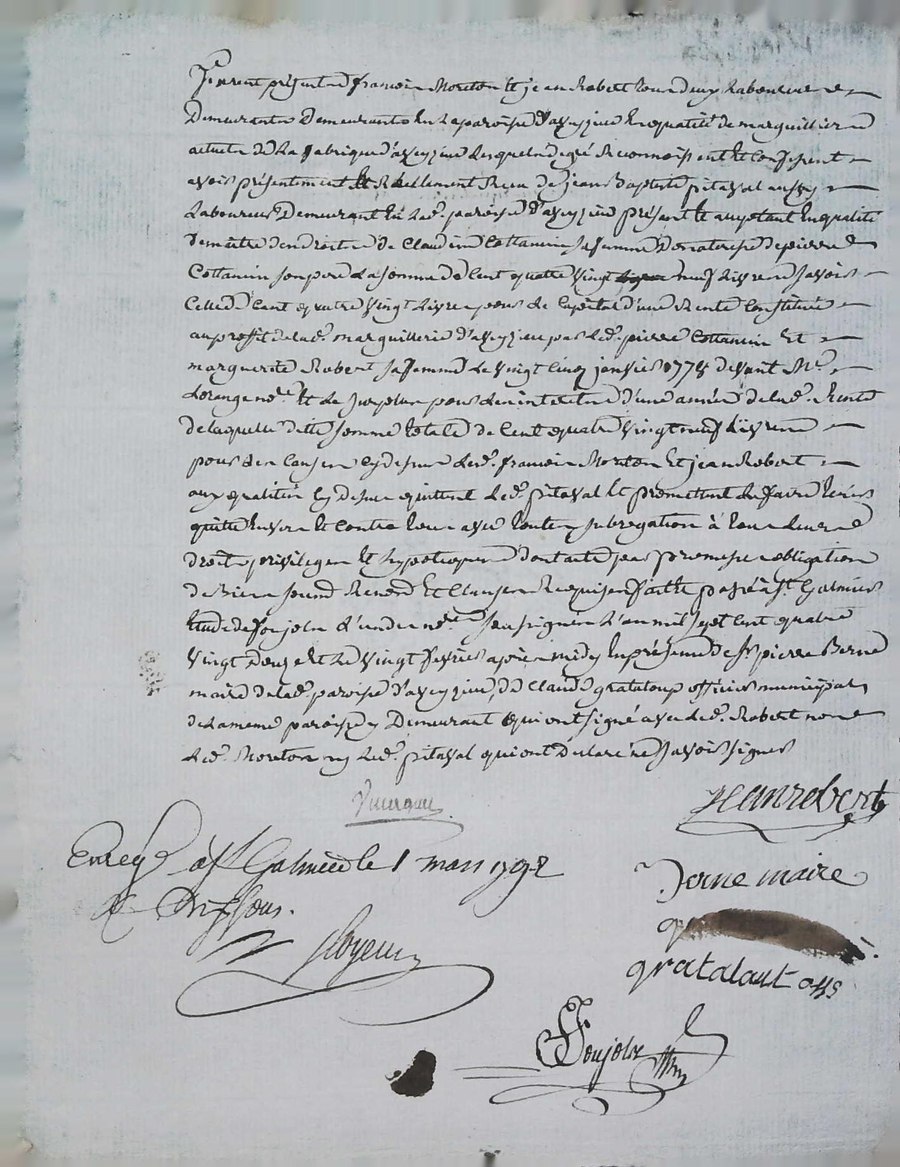 furent présents françois Moreton et jean Robert tous deux Laboureurs
Demeurants Demeurants en La paroisse d'aveyzieu En qualité de marguilliers
actuels de La fabrique d'aveyzieu Lesquels de gré Reconnoissent et Confessent
avoir présentement et Réellement Receu de jean Baptiste pitaval aussy
Laboureur Demeurant En lade. paroisse d'aveyzieu présent et acceptant En qualité
de maitre des droits de Claudine Cottancin sa femme de pierre
Cottancin son pere La somme de Cent quatre Vingt neuf Livres savoir
Celle de Cent quatre Vingt Livres pour Le Capital d'une Rente Constituée
au proffit de lade. marguillerie d'aveyzieu par Led. pierre Cottancin Et
marguerite Robert sa femme Le Vingt Cinq janvier 1775 devant Me.
Lorange nore. Et Le surplus pour Les interets d'une année de lade. Rente
de laquelle dette somme totale de Cent quatre Vingt neuf Livres
Lesd. françois Moreton Et jean Robert
aux qualités Cy dessus quittent Led. pitaval Et promettent de faire tenir
quitte Envers Et Contre tous avec toute subrogation à Leurs
droits privileges Et hypotheques Dont acte par promesse obligation
de Biens soumd. Renond. Et Clauses Requises fait Et passé à st. Galmier
Etude de soujolx L'un des nores. soussignés L'an mil sept Cent quatre
Vingt Douze Et Le Vingt fevrier après midy En présence de sr. pierre Berne
maire de lade. paroisse d'aveyzieu, de Claude grataloup officier municipal
de La meme paroisse y Demeurant qui ont signé avec Led. Robert non
Led. Moreton ny Led. pitaval qui ont déclaré ne savoir signer
jean robert
Enregé à st Galmier le 1 mars 1792
Berne maire
gratalout off
Soujolx